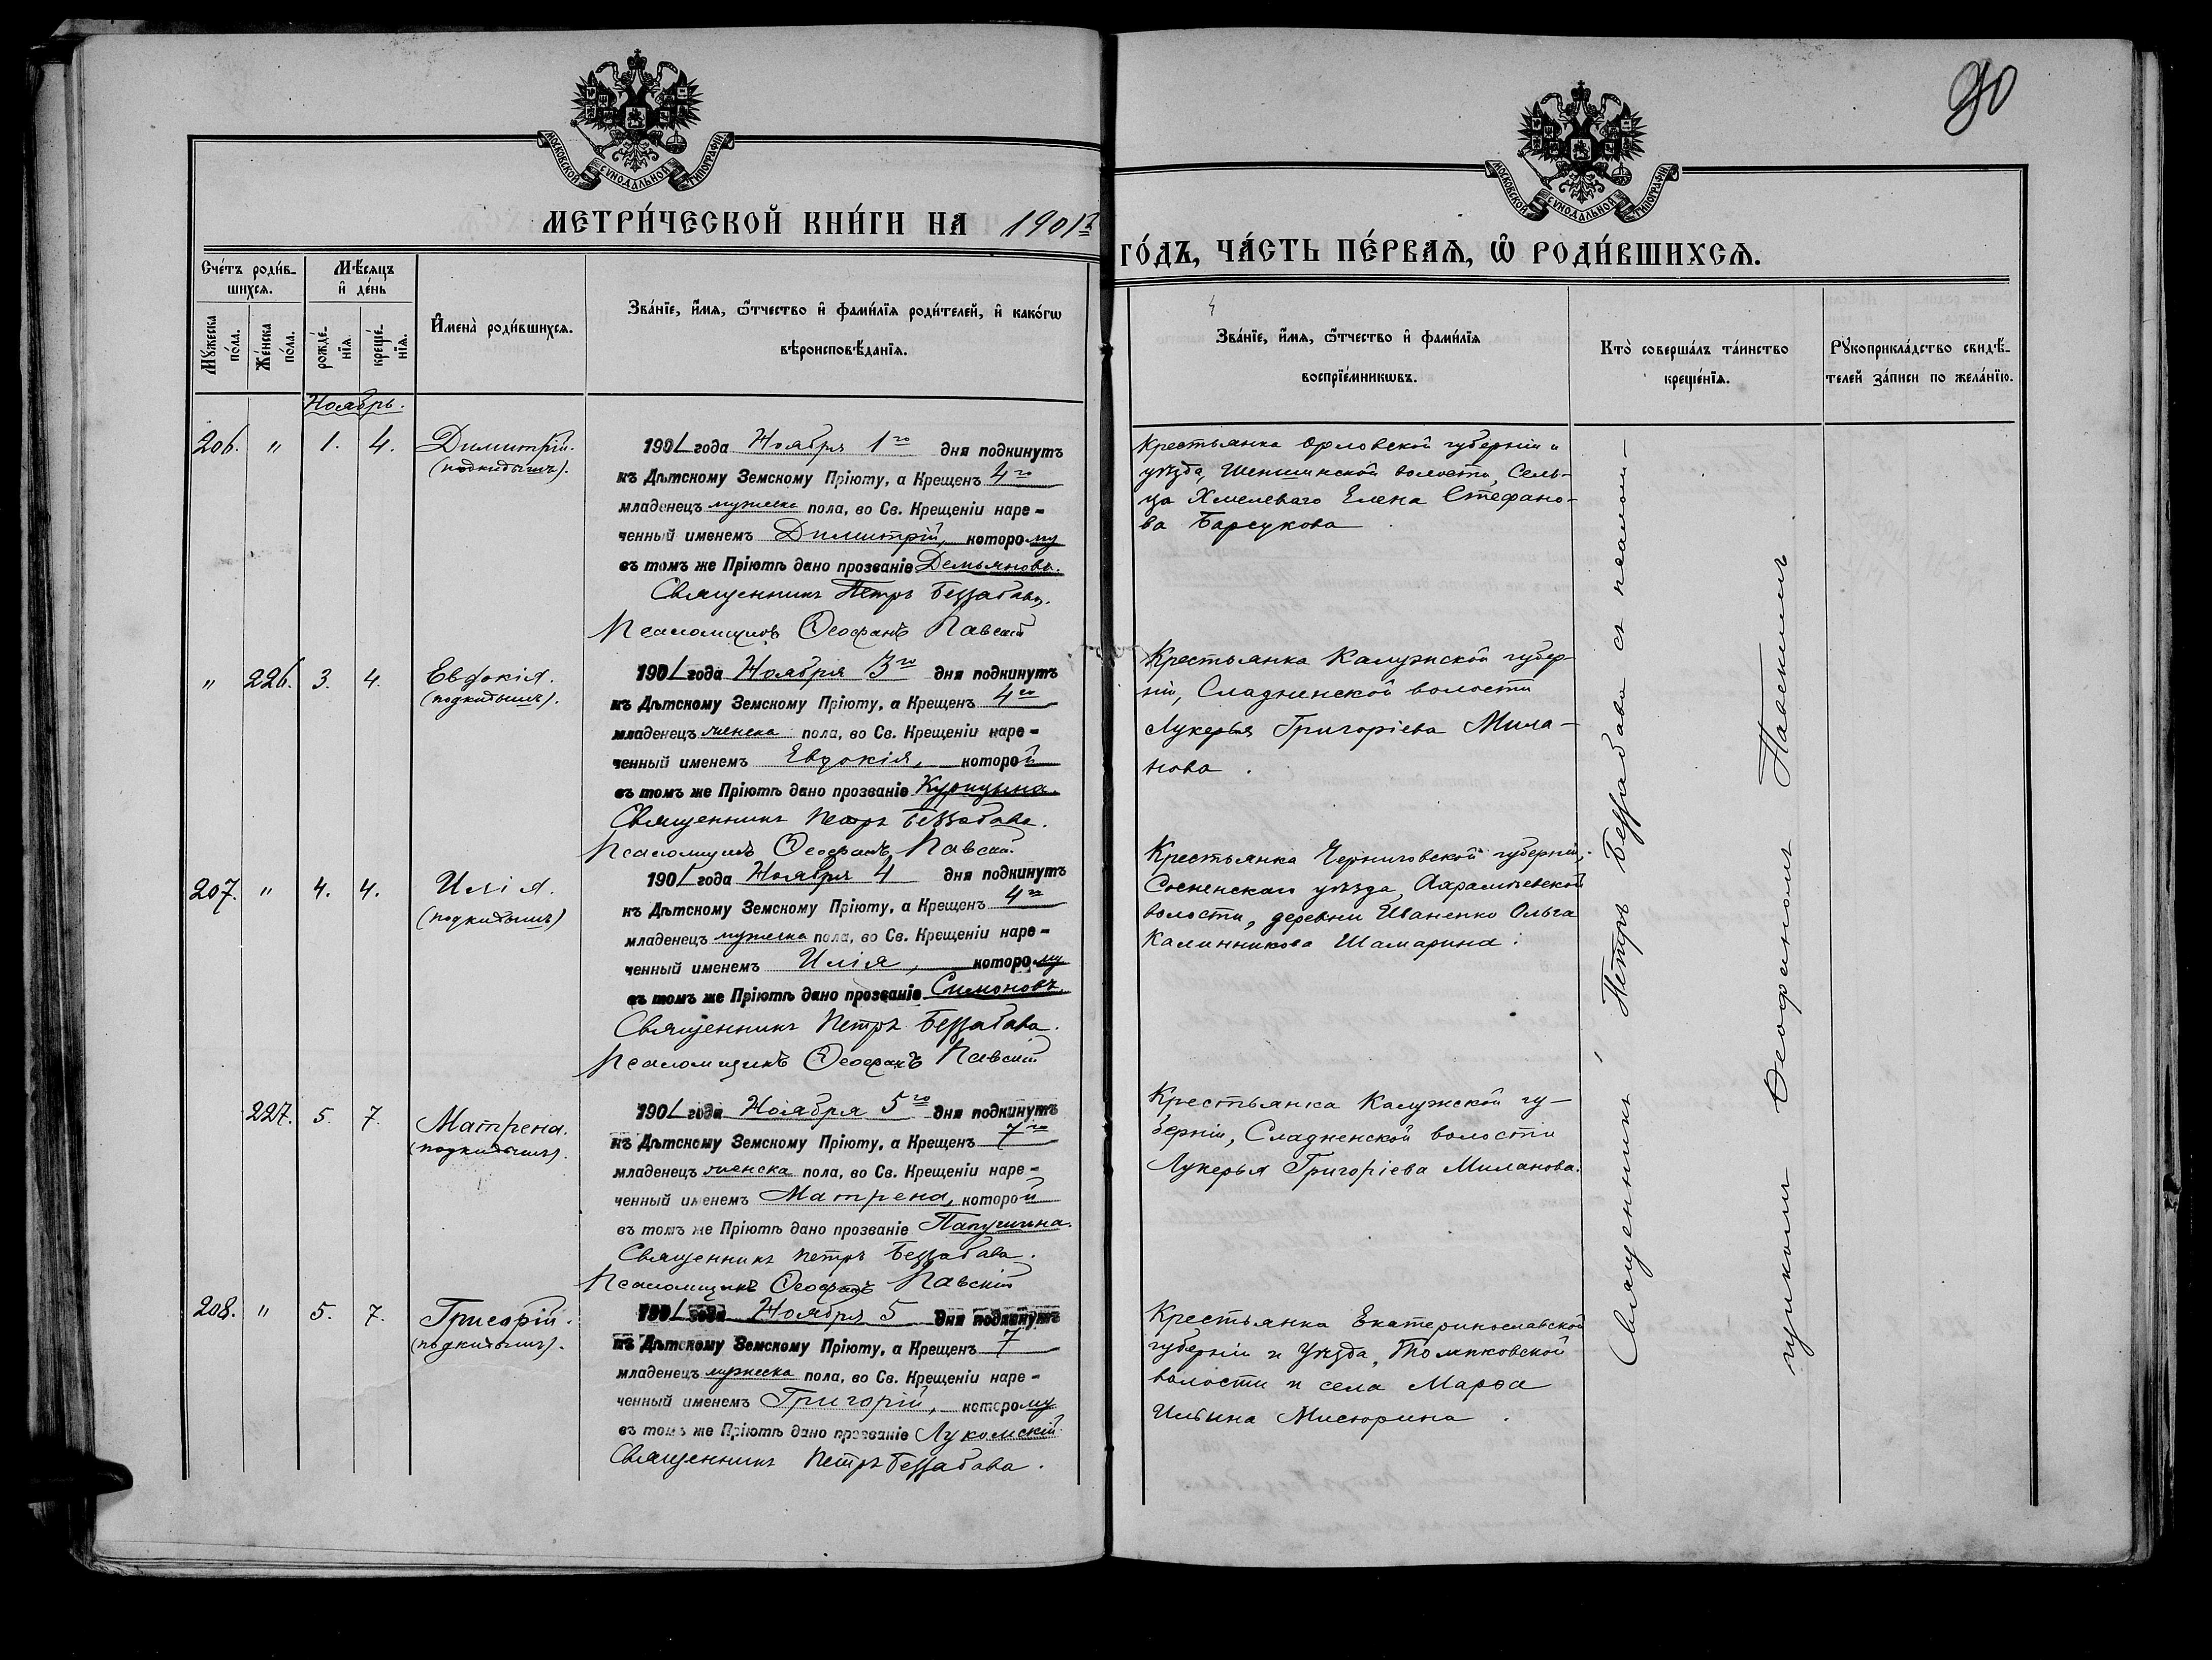 90
МОСКОВСКОЙ СѴНОДАЛЬНОЙ ТИПОГРАФІИ
МОСКОВСКОЙ СѴНОДАЛЬНОЙ ТИПОГРАФІИ
МЕТРИ́ЧЕСКОЙ КНИ́ГИ НА 1901й
ГО́ДЪ, ЧА́СТЬ ПЕ́РВАѦ, Ѡ҆ РОДИ́ВШИХСѦ.
Сче́тъ роди́в-
шихсѧ.
Мꙋжеска
по́ла.
Же́нска
по́ла.
Мѣ́сѧцъ
и҆ де́нь
рожде́-
нїѧ.
креще́-
нїѧ.
И҆мена̀ роди́вшихсѧ.
Зва́нїе, и҆́мѧ, ѻ҆́тчество и҆ фами́лїѧ роди́телей, и҆ како́гѡ
вѣроисповѣ́данїѧ.
Зва́нїе, и҆́мѧ, ѻ҆́тчество и҆ фами́лїѧ
воспрїе́мникѡвъ.
Кто̀ соверша́лъ та́инство
креще́нїѧ.
Рꙋкоприкла́дство свидѣ́-
телей за́писи по жела́нїю.
Ноябрь.
206. " 1. 4. Димитрій.
(подкидышъ).
1901 года Ноября 1го дня подкинутъ
къ Дѣтскому Земскому Пріюту, а Крещенъ 4го
младенецъ мужеска пола, во Св. Крещеніи наре-
ченный именемъ Димитрій, которому
въ томъ же Пріютѣ дано прозваніе Демьяновъ.
Священникъ Петръ Беззабава.
Псаломщикъ Ѳеофанъ Павскій
Крестьянка Орловской губерніи и
уѣзда, Шеншинской волости, Сель-
ца Хмелеваго Елена Стефано-
ва Барсукова
" 226. 3. 4. Евдокія.
(подкидышъ).
1901 года Ноября 3го дня подкинутъ
къ Дѣтскому Земскому Пріюту, а Крещенъ 4го
младенецъ женска пола, во Св. Крещеніи наре-
ченный именемъ Евдокія, которой
въ томъ же Пріютѣ дано прозваніе Курицына.
Священникъ Петръ Беззабава.
Псаломщикъ Ѳеофанъ Павскій
Крестьянка Калужской губер-
ніи, Сладненской волости
Лукерья Григоріева Мила-
нова.
207. " 4. 4. Илія.
(подкидышъ)
1901 года Ноября 4 дня подкинутъ
къ Дѣтскому Земскому Пріюту, а Крещенъ 4го
младенецъ мужеска пола, во Св. Крещеніи наре-
ченный именемъ Илія, которому
въ томъ же Пріютѣ дано прозваніе Симоновъ.
Священникъ Петръ Беззабава.
Псаломщикъ Ѳеофанъ Павскій
Крестьянка Черниговской губерніи,
уѣзда,
волости, деревни Иваненко Ольга
Калинникова Шамарина.
227. 5. 7. Матрена.
(подкидышъ).
1901 года Ноября 5го дня подкинутъ
къ Дѣтскому Земскому Пріюту, а Крещенъ 7го
младенецъ женска пола, во Св. Крещеніи наре-
ченный именемъ Матрена, которой
въ томъ же Пріютѣ дано прозваніе Папушина.
Священникъ Петръ Беззабава.
Псаломщикъ Ѳеофанъ Павскій
Крестьянка Калужской гу-
берніи, Сладненской волости
Лукерья Григоріева Миланова.
208. " 5. 7. Григорій.
(подкидышъ).
1901 года Ноября 5 дня подкинутъ
къ Дѣтскому Земскому Пріюту, а Крещенъ 7
младенецъ мужеска пола, во Св. Крещеніи наре-
ченный именемъ Григорій, которому
въ томъ же Пріютѣ дано прозваніе Лукомскій.
Священникъ Петръ Беззабава.
Крестьянка Екатеринославской
губерніи и Уѣзда, Томаковской
волости и села Марѳа
Ильина Мисюрина.
Священникъ Петръ Беззабава съ псалом-
щикомъ Ѳеофаномъ Павскимъ.